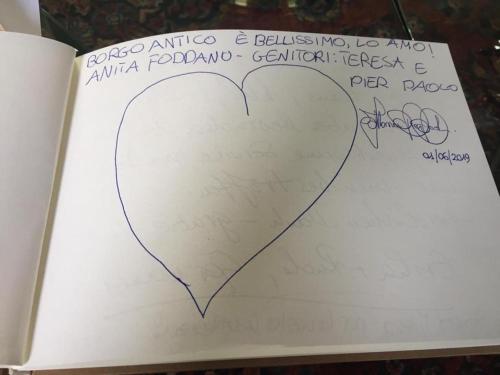 BORGO ANTICO È BELLISSIMO, LO AMO!
ANITA FODDANO - GENITORI: TERESA E
PIER PAOLO
01/06/2019